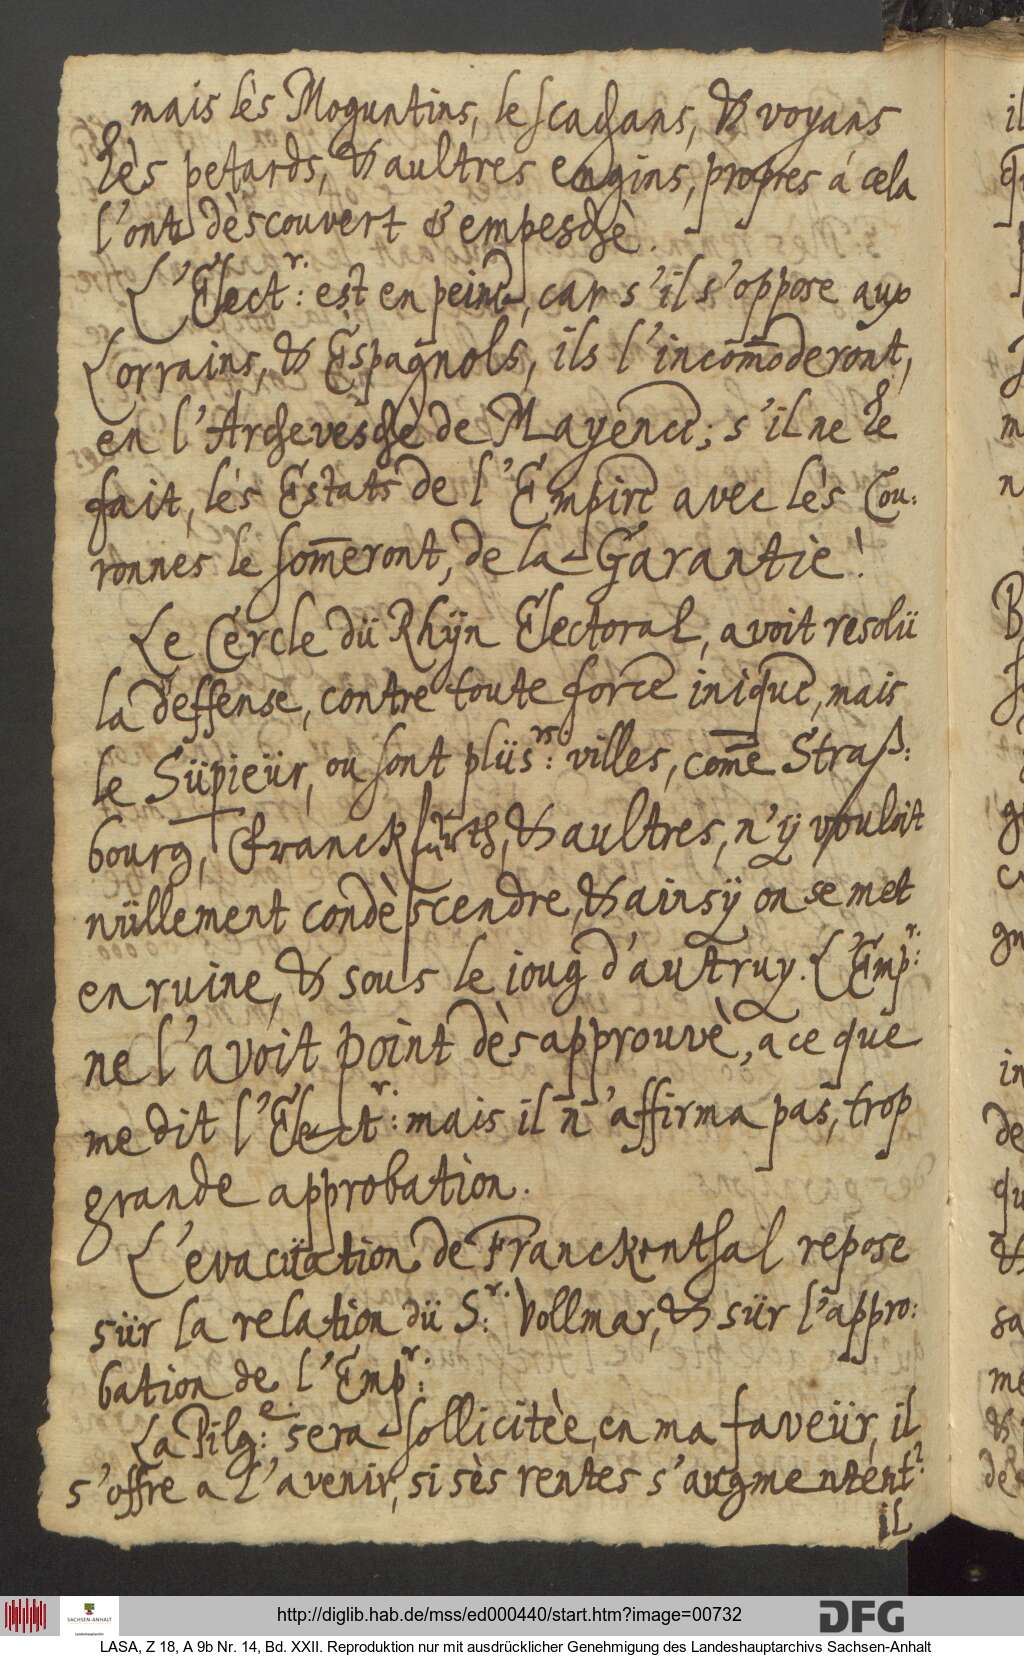 mais lès Moguntins, le scachans, & voyans
lès petards, & aultres engins, propres á cela
l'ont dèscouvert & empeschè.
L'Elect.r: est en peine, car s'il s'oppose aux
Lorrains, & Espagnols, ils l'incom̄oderont,
en l'Archevéschè de Mayence; s'il ne le
fait, lés Estats de l'Empire avec lès Cou:
ronnes le som̄eront, de la Garantie!
Le Cercle dü Rhÿn Electoral, avoit resolü
la deffense, contre toute force inique, mais
le Süpieür, ou sont plüs.rs: villes, com̄e Straß:
bourg, Franckfurth, & aultres, n'ÿ vouloit
nüllement condèscendre, & ainsÿ on se met
en ruine, & sous le joug d'autruy. L'Emp.r:
ne l'avoit point dèsapprouvè, a ce que
me dit l'Elect.r: mais il n'affirma pas, trop
grande approbation.
L'evacüation de Franckenthal repose
sür la relation dü S.r: Vollmar, & sür l'appro:
bation de l'Emp.r:
La Pilg.e: sera sollicitèe, en ma faveür, il
s'offre a l'avenir, si sès rentes s'augmentent?
il
http://diglib.hab.de/mss/ed000440/start.htm?image=00732
SACHSEN-ANHALT
DFG
LASA, Z 18, A 9b Nr. 14, Bd. XXII. Reproduktion nur mit ausdrücklicher Genehmigung des Landeshauptarchivs Sachsen-Anhalt